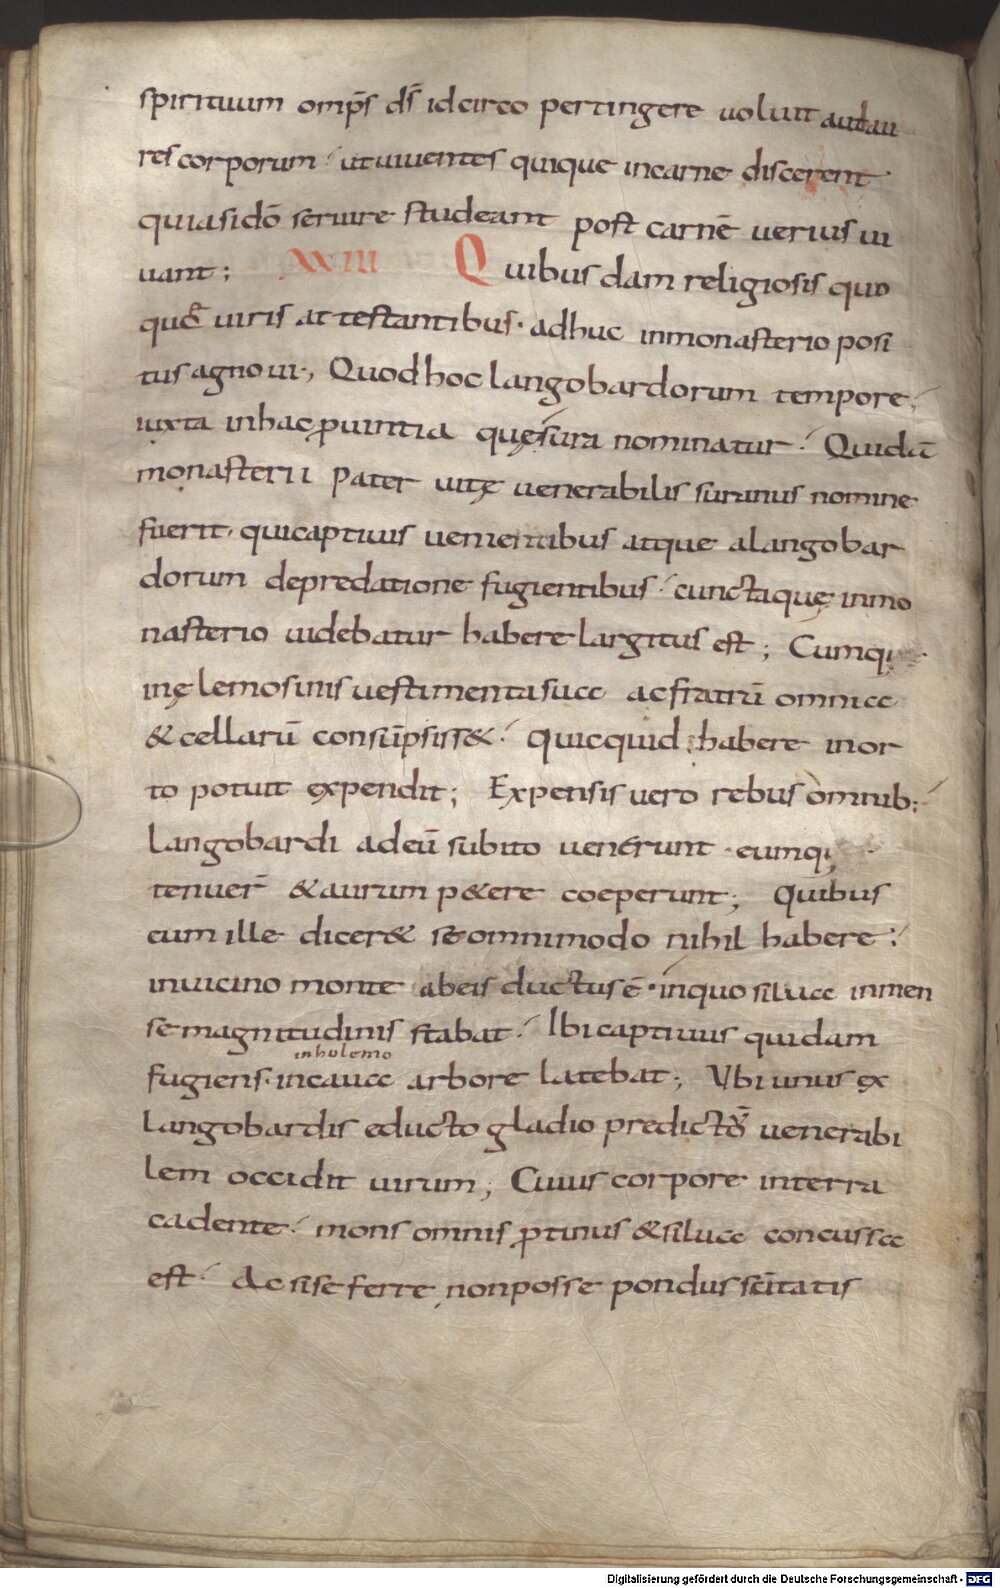 spirituum omp̄s ds̄ idcirco pertingere uoluit ad au
res corporum· ut uiuentes quique incarne discerent
quia si dō seruire studeant post carnē uerius ui
uant; XXIII Quibusdam religiosis quo
quę uiris attestantibus· adhuc inmonasterio posi
tus agnoui·, Quod hoc langobardorum tempore;
iuxta inhac ꝓuintia quę sura nominatur· Quidā
monasterii Pater uitę uenerabilis suranus nomine
fuerit· qui captiuis uenientibus atque alangobar
dorum depredatione fugientibus· cunctaquę inmo
nasterio uidebatur habere largitus est; Cumq;
inęlemosinis uestimenta sua ac fratrū omnia
& cellarū consūpsiss&· Quicquid habere inor
to potuit expendit; Expensis uero rebus omnib;
Langobardi adeū subito uenerunt · eumq;
tenuer̄ & aurum p&ere coeperunt; Quibus
cum ille dicer& se omnimodo nihil habere·
inuicino monte abeis ductus ē· inquo silua inmen
se magnitudinis stabat· Ibi captiuus quidam
inhulemo
fugiens· incaua arbore latebat; Vbi unus ex
Langobardis educto gladio predictō uenerabi
lem occidit uirum; Cuius corpore interra
cadente· mons omnis ꝓtinus & silua concussa
est· Ac si se ferre non posse pondus sc̄itatis
Digitalisierung gefördert durch die Deutsche Forschungsgemeinschaft - DFG